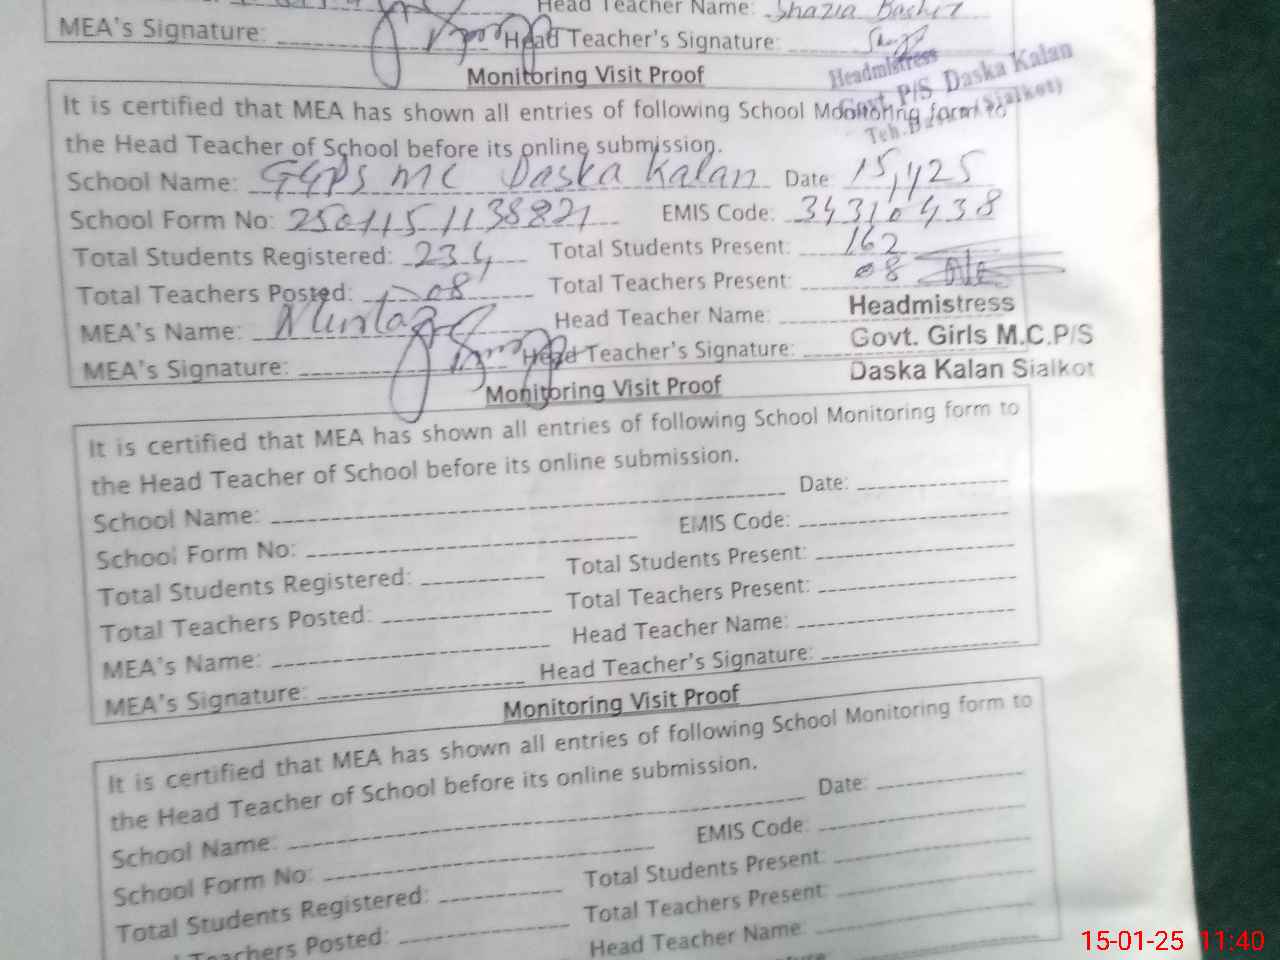 Head Teacher Name: Shazia Bashir
MEA's Signature: Head Teacher's Signature:
Headmistress
Govt. P/S Daska Kalan
Teh. (Sialkot)
Monitoring Visit Proof
It is certified that MEA has shown all entries of following School Monitoring form to
the Head Teacher of School before its online submission.
School Name: GGPS MC Daska Kalan Date: 15/1/25
School Form No: EMIS Code: 34310438
Total Students Registered: 234 Total Students Present: 162
Total Teachers Posted: 08 Total Teachers Present: 08
MEA's Name: Mumtaz Head Teacher Name:
MEA's Signature: Head Teacher's Signature:
Headmistress
Govt. Girls M.C.P/S
Daska Kalan Sialkot
Monitoring Visit Proof
It is certified that MEA has shown all entries of following School Monitoring form to
the Head Teacher of School before its online submission.
School Name: Date:
School Form No: EMIS Code:
Total Students Registered: Total Students Present:
Total Teachers Posted: Total Teachers Present:
MEA's Name: Head Teacher Name:
MEA's Signature: Head Teacher's Signature:
Monitoring Visit Proof
It is certified that MEA has shown all entries of following School Monitoring form to
the Head Teacher of School before its online submission.
School Name: Date:
School Form No: EMIS Code:
Total Students Registered: Total Students Present:
Teachers Posted: Total Teachers Present:
Head Teacher Name:
15-01-25 11:40